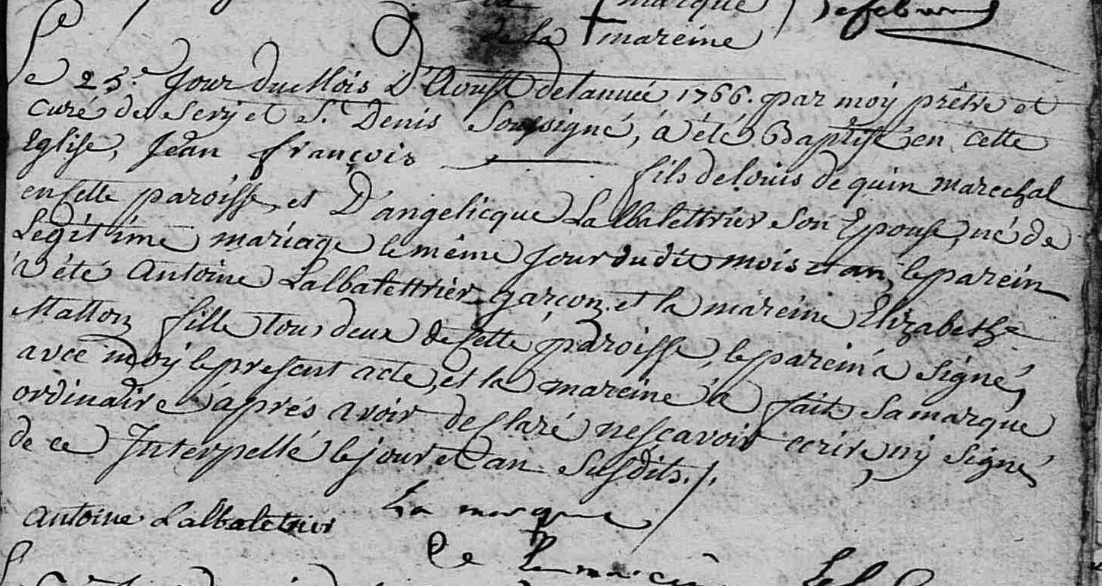 la marque
de la mareine
Lefebvre
Le 25.e Jour du Mois D'Aoust de lanneé 1766. par moy prêtre et
curé de Sery et St. Denis Soussigné, à été Baptisé en cette
Eglise, Jean françois fils de louis de quin marechal
en cette paroisse, et D'angelicque Lalbalettrier son Epouse, né de
Legitime mariage le même Jour dudit mois et an, le parein
à été Antoine Lalbalettrier garçon et la mareine Elizabeth
Matton fille tous deux de cette paroisse, le parein à signé,
avec moy le present acte, et la mareine à fait sa marque
ordinaire après avoir desclaré ne sçavoir ecrire ny signé
de ce Interpellé le jour et an susdits./.
Antoine Lalbaletrier
La marque
De la mareine